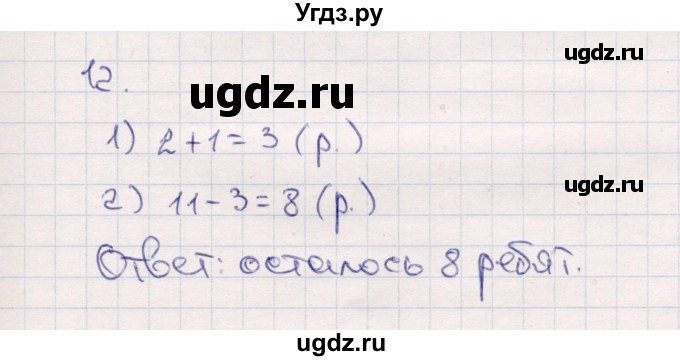 Угдз.ру
ugdz.ru
12.
ugdz.ru
1) 2+1=3 (р.)
2) 11-3=8 (р.)
ugdz.ru
Ответ: осталось 8 ребят.
ugdz.ru
ugdz.ru